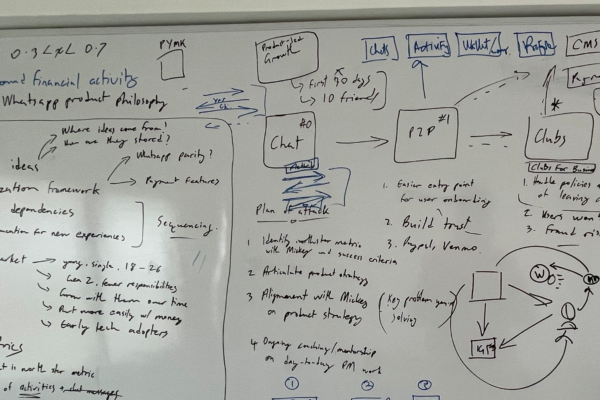 0.3 < x < 0.7
PYMK
Product-led
Growth
Chats
Activity
Wallet
Profile
CMS
ound financial activity
Whatsapp product philosophy
First 30 days
10 friends
Where ideas come from?
How are they shared?
ideas
Whatsapp parity?
Payment features
framework
dependencies
for new experiences
Sequencing.
arket
young, single, 18 - 26
Gen Z, fewer responsibilities
Grow with them over time
Part more easily w/ money
Early tech adopters
rics
t is north star metric
of activities
#0
Chat
#1
P2P
*
Clubs
Plan of attack
1 Identify northstar metric
with Mickey and success criteria
2 Articulate product strategy
3 Alignment with Mickey
on product strategy
Key problem
solving
4 Ongoing coaching/mentorship
on day-to-day PM work
1 2 3
1. Easier entry point
for user onboarding
2. Build trust
3. Paypal, Venmo
Clubs For
1. policies
of leaving
2. Users
3. Fraud
W